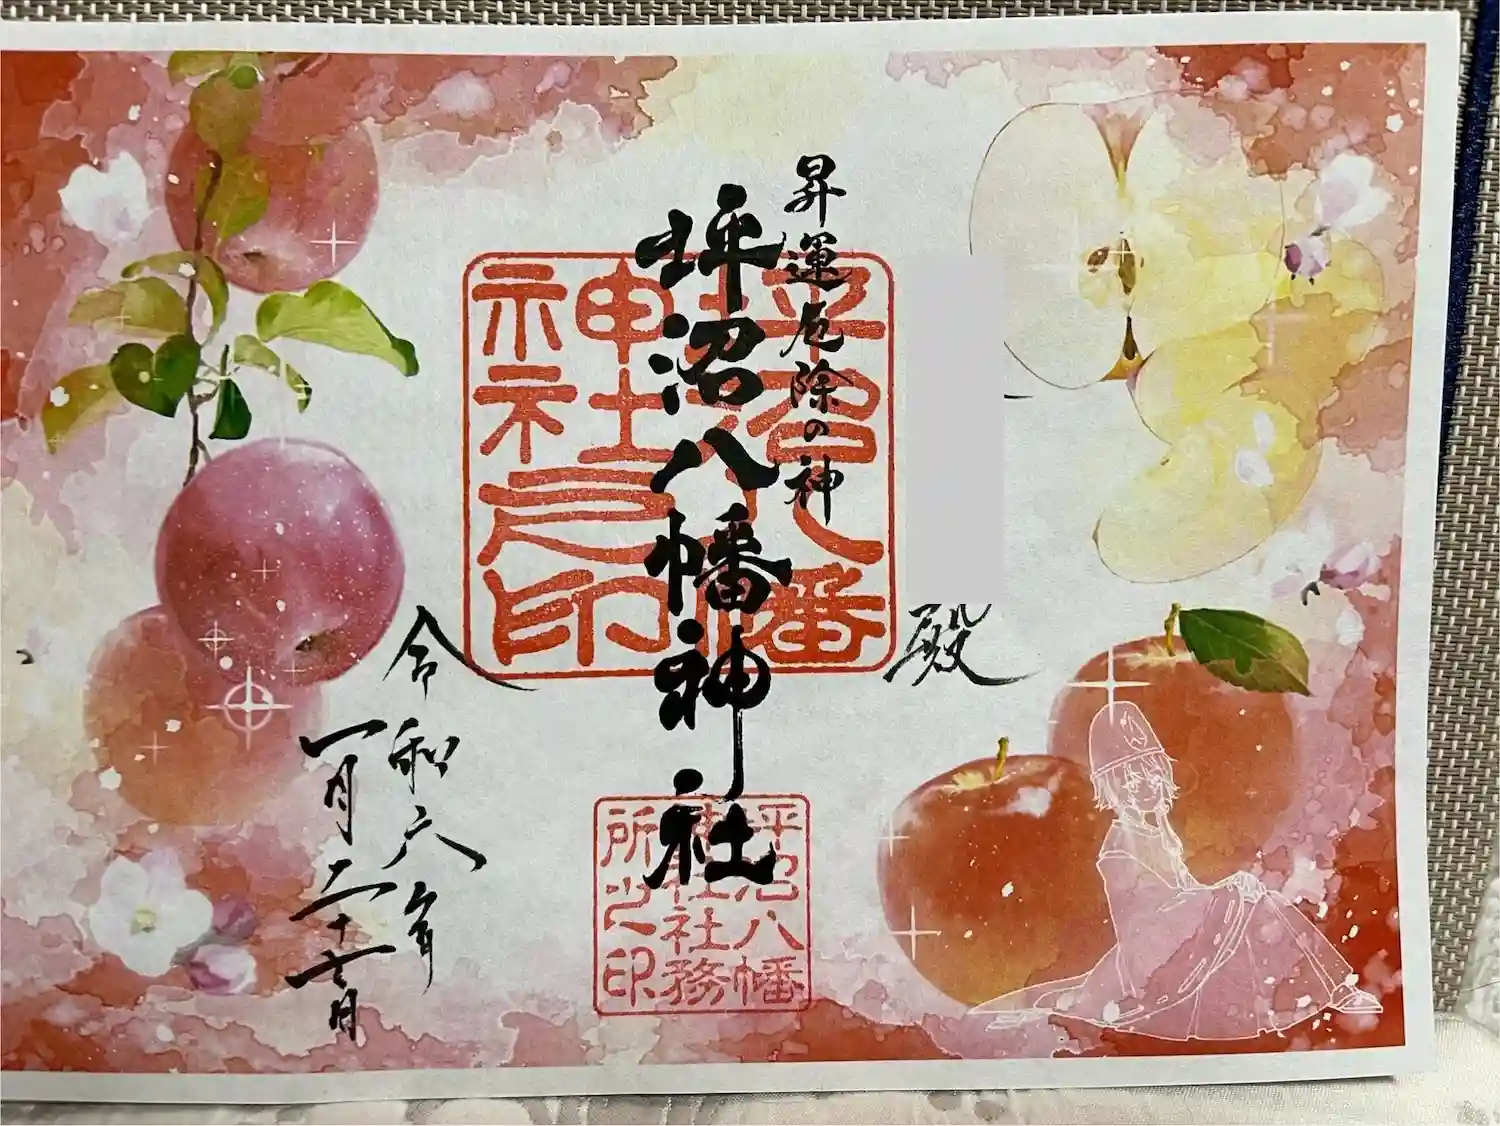 殿
昇運厄除の神
坪沼八幡神社
坪沼八幡
神社之印
坪沼八幡
神社社務
所之印
令和六年
一月二十六日